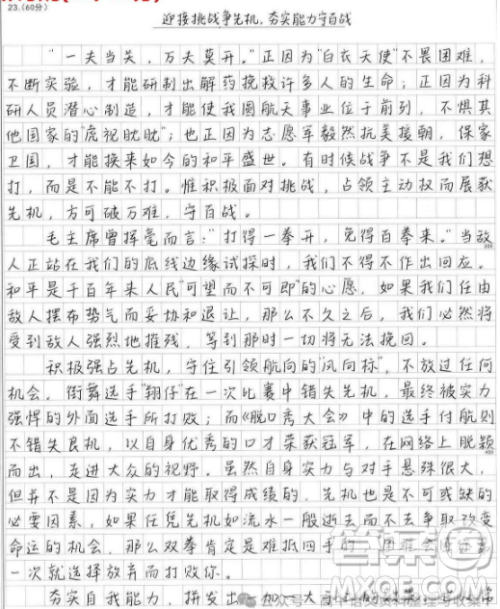 23.(60分)
迎接挑战争先机，夯实能力守百战
“一夫当关，万夫莫开。”正因为“白衣天使”不畏困难，
不断实验，才能研制出解药挽救许多人的生命；正因为科
研人员潜心制造，才能使我国航天事业位于前列，不惧其
他国家的“虎视眈眈”；也正因为志愿军毅然抗美援朝，保家
卫国，才能换来如今的和平盛世。有时候战争不是我们想
打，而是不能不打。惟积极面对挑战，占领主动权而展获
先机，方可破万难，守百战。
毛主席曾挥毫而言：“打得一拳开，免得百拳来。”当敌
人正站在我们的底线边缘试探时，我们不得不作出回应。
和平是千百年来人民“可望而不可即”的心愿，如果我们任由
敌人摆布势气而妥协和退让，那么不久之后，我们必然将
受到敌人强烈地摧残，等到那时一切将无法挽回。
积极强占先机，守住引领航向的“风向标”，不放过任何
机会。街舞选手“翔仔”在一次比赛中错失先机，最终被实力
强悍的外面选手所打败；而《脱口秀大会》中的选手付航则
不错失良机，以自身优秀的口才荣获冠军，在网络上脱颖
而出，走进大众的视野。虽然自身实力与对手悬殊很大，
但并不是因为实力才能取得成绩的，先机也是不可或缺的
必要因素，如果任凭先机如流水一般逝去而不去争取改变
命运的机会，那么双拳肯定是难抵四手的，困难会
一次就选择放弃而打败你。
夯实自我能力，拼发出